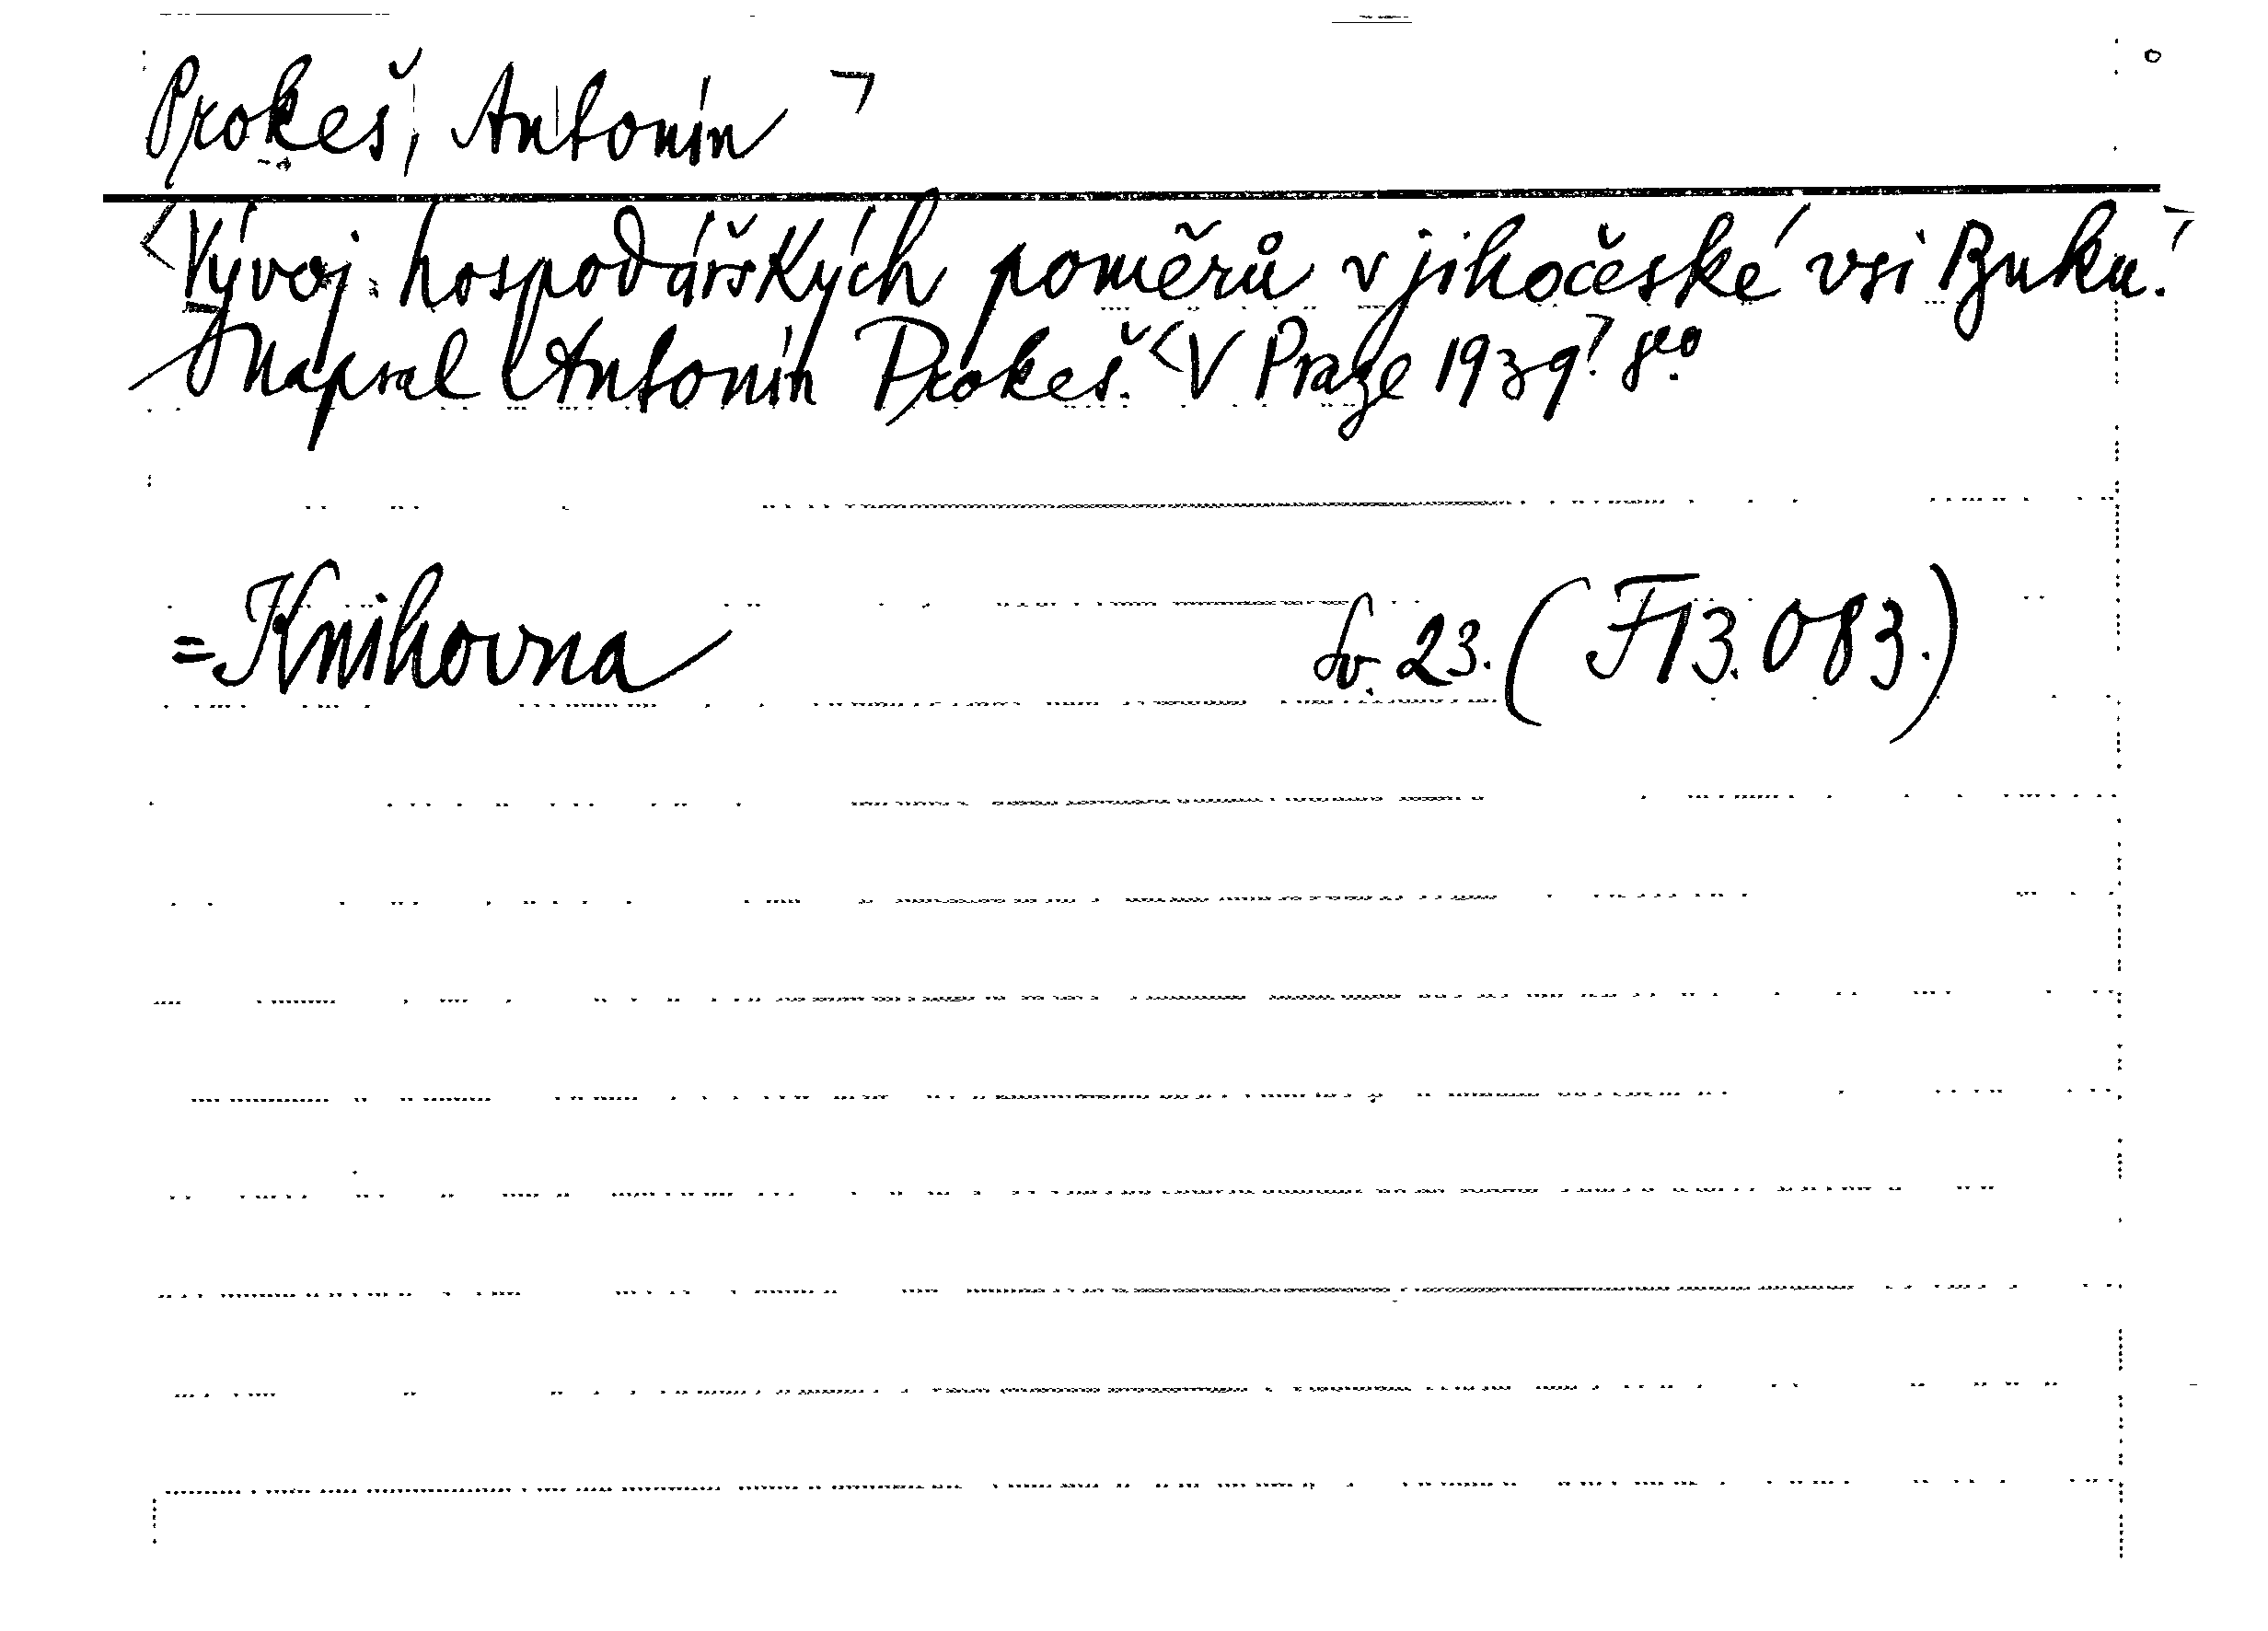 Prokeš, Antonín ¬
<Vývoj hospodářských poměrů v jihočeské vsi Buku.¬
Napsal Antonín Prokeš. <V Praze 1939.¬ 8°.
=Knihovna Sv. 23. (F 13.083.)